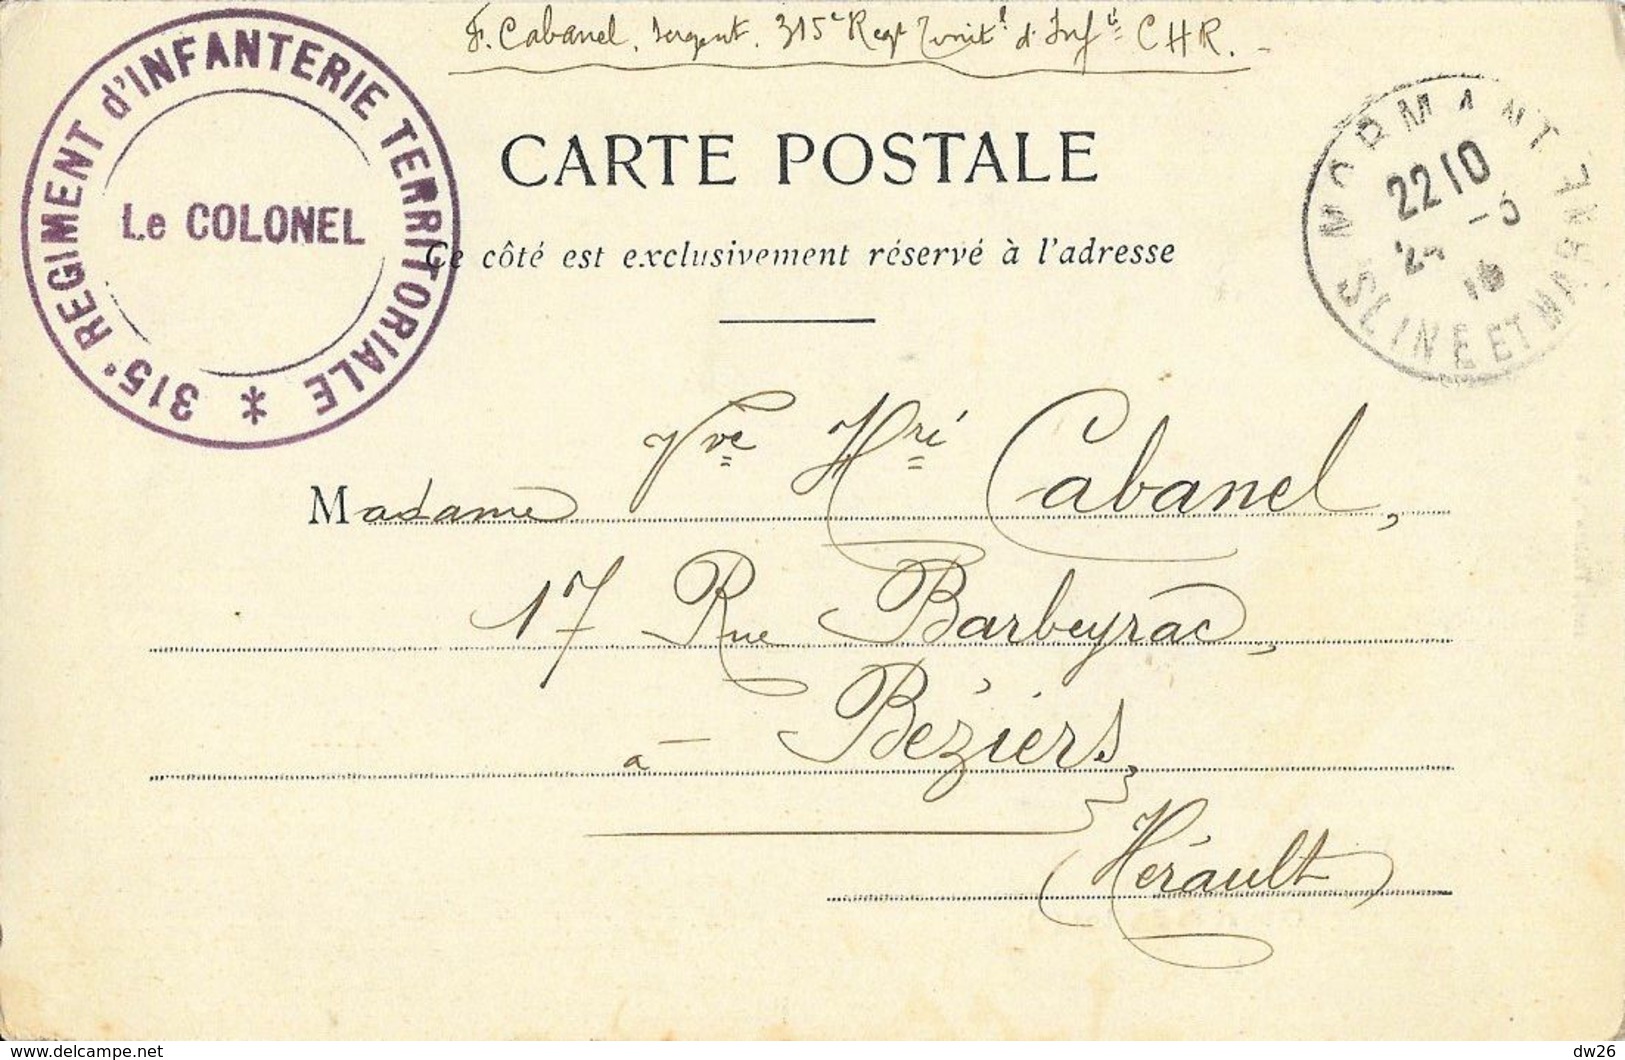 F. Cabanel, Sergent, 315e Regt d'Infie CHR.
315e REGIMENT d'INFANTERIE TERRITORIALE *
Le COLONEL
CARTE POSTALE
Ce côté est exclusivement réservé à l'adresse
MORMANT
22 10
SEINE ET MARNE
Madame Vve Hri Cabanel,
17 Rue Barbeyrac,
à – Béziers,
(Hérault)
delcampe.net
dw26